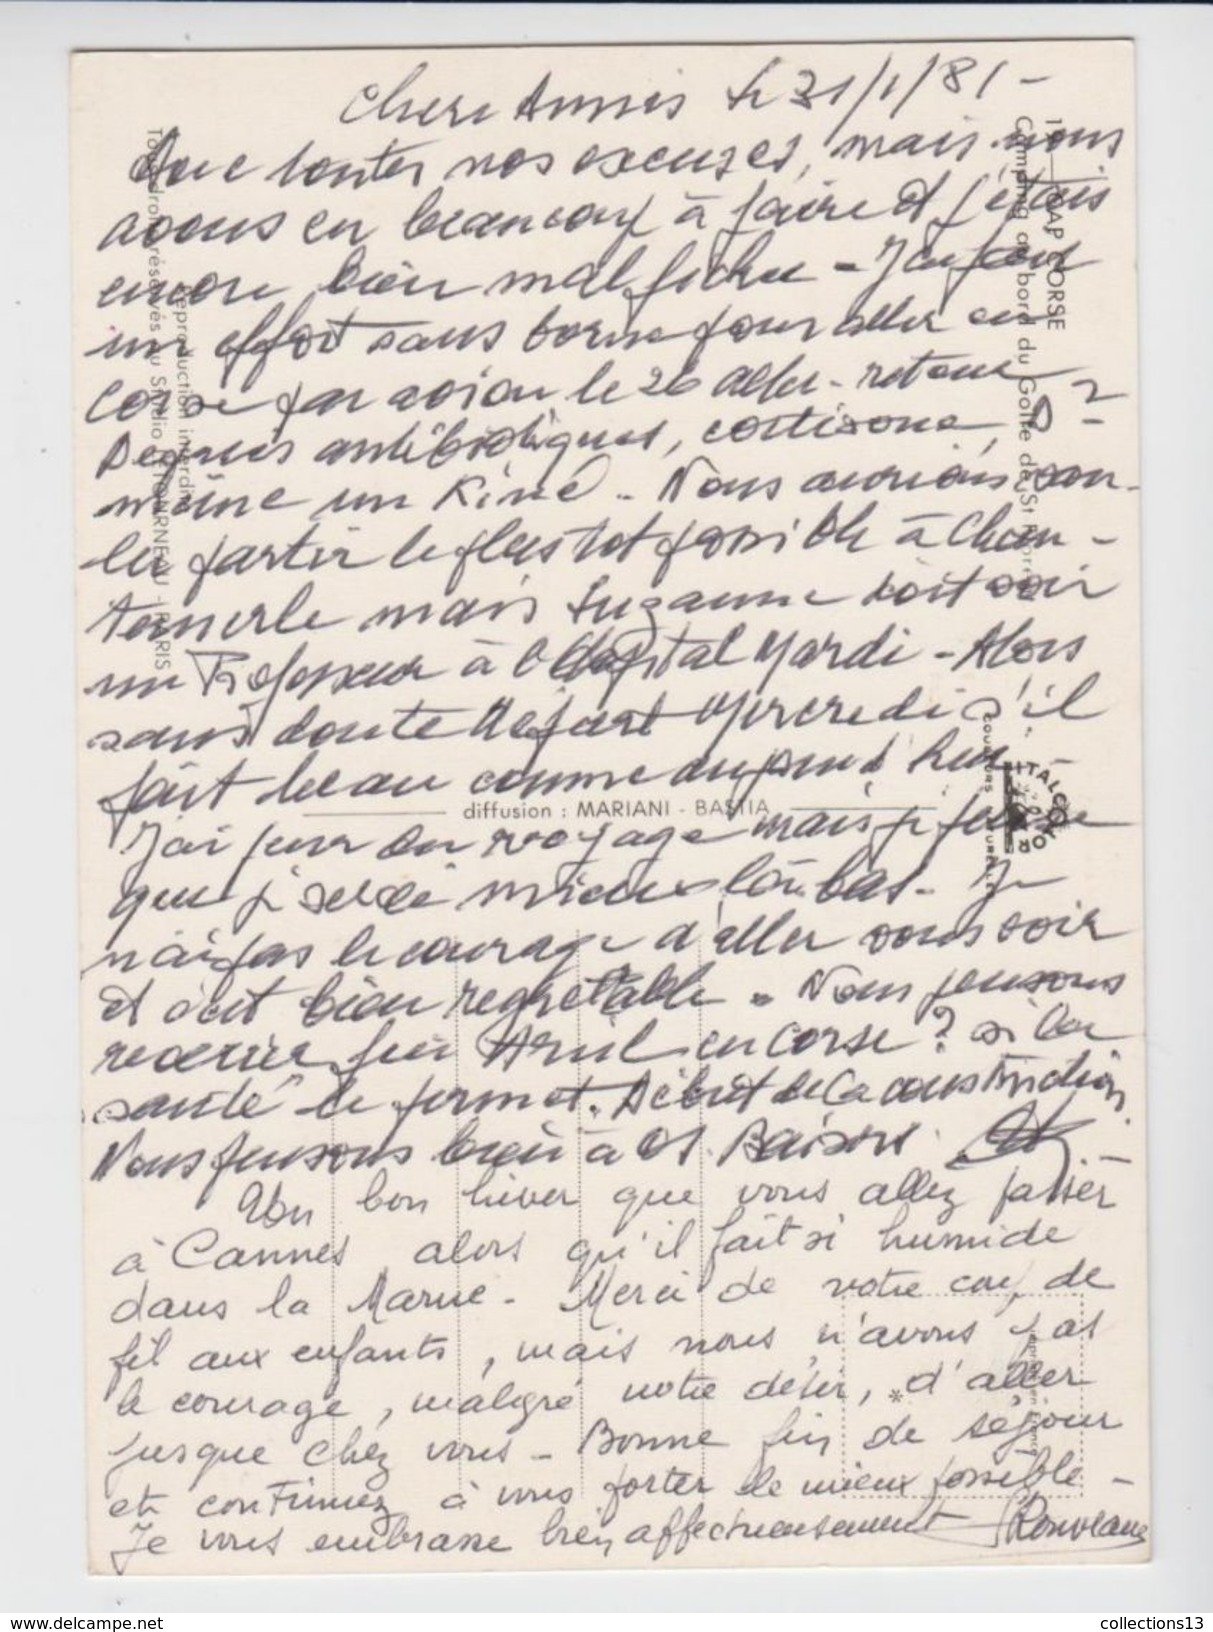 Chers Amis le 31/1/81 -
Avec toutes nos excuses, mais nous
avons eu beaucoup à faire et j'étais
encore bien mal fichu - J'ai fait
un effort sans borne pour aller en
Corse par avion le 26 aller - retour
Depuis antibiotiques, cortisone, et
même un Kiné - Nous aurions vou-
lu partir le plus tot possible à Chan-
temerle mais Suzanne doit voir
un Professeur à l'Hopital Mardi - Alors
sans doute départ Mercredi s'il
fait beau comme aujourd'hui
J'ai peur du voyage mais je pense
que je serai mieux là bas - Je
n'ai pas le courage d'aller vous voir
et c'est bien regrettable - Nous pensons
revenir fin Avril en Corse ? si la
santé le permet. Début de la construction
Nous pensons bien à vs. Baisers
bon hiver que vous allez passer
à Cannes alors qu'il fait si humide
dans la Marne - Merci de votre coup de
fil aux enfants, mais nous n'avons pas
le courage, malgré notre désir, d'aller
jusque chez vous - Bonne fin de séjour
et continuez à vous porter le mieux possible -
Je vous embrasse bien affectueusement
CAP CORSE
Camping au bord du Golfe de St
diffusion : MARIANI - BASTIA
Reproduction interdite
Tous droits réservés au Studio - PARIS
ITALCOLOR
collections13
delcampe.net